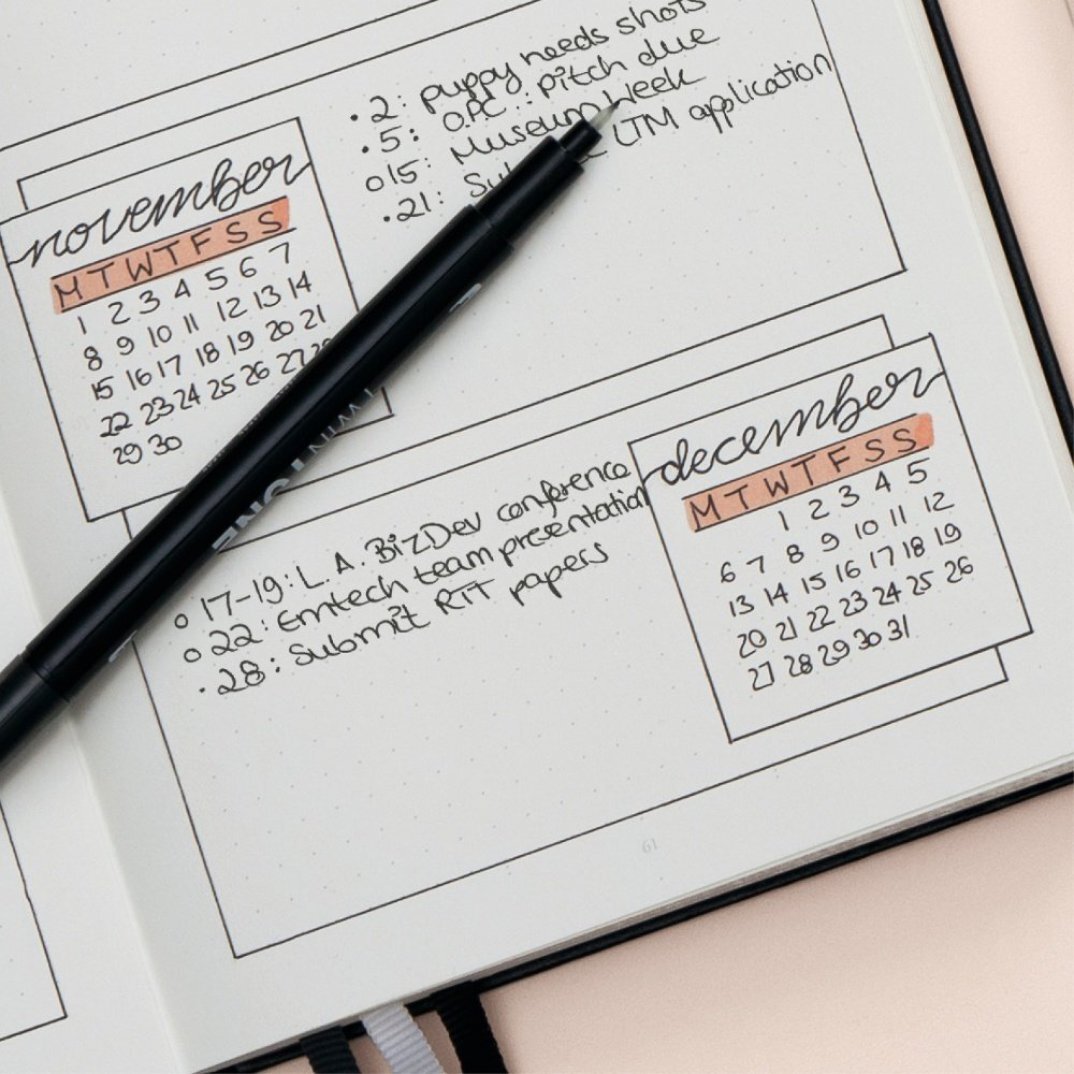 .2: puppy needs shots
.5: OPC: pitch due
o15: Museum Week
.21: LTM application
november
M T W T F S S
1 2 3 4 5 6 7
8 9 10 11 12 13 14
15 16 17 18 19 20 21
22 23 24 25 26 27
29 30
december
M T W T F S S
1 2 3 4 5
6 7 8 9 10 11 12
13 14 15 16 17 18 19
20 21 22 23 24 25 26
27 28 29 30 31
o 17-19: L.A. BizDev conference
o 22: Emtech team presentation
.28: Submit RTT papers
TWIN
61